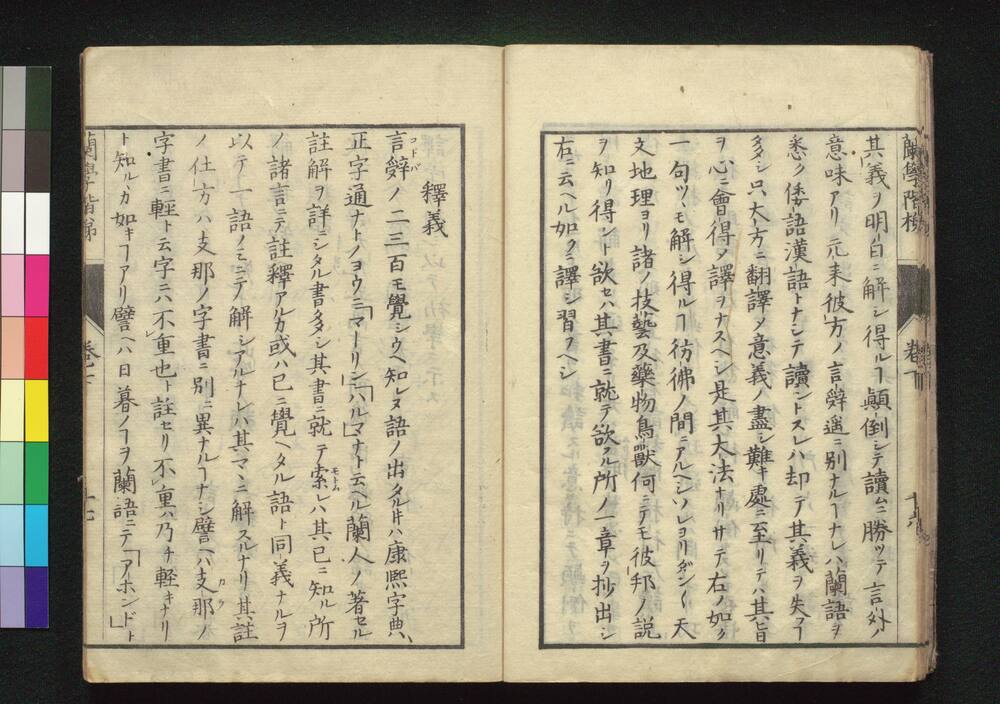 蘭學階梯 卷下 十六
其義ヲ明白ニ解シ得ルヿ顚倒シテ讀ムニ勝ツテ言外ノ
意味アリ元来彼方ノ言辭遥ニ別ナルヿナレハ蘭語ヲ
悉ク倭語漢語トナシテ讀ントスレハ却テ其義ヲ失フヿ
多シ只大方ニ翻譯メ意義ノ盡シ難キ處ニ至リテハ其旨
ヲ心ニ會得メ譯ヲナスヘシ是其大法ナリサテ右ノ如ク
一句ツヽモ解シ得ルヿ彷彿ノ間ニアルヘシソレヨリダン〳〵天
文地理ヨリ諸ノ技藝及藥物鳥獸何ニテモ彼邦ノ説
ヲ知リ得ント欲セハ其書ニ就テ欲スル所ノ一章ヲ抄出シ
右ニ云ヘル如ク譯シ習フヘシ
釋義
言辭コトバノ二三百モ覺シウヘ知レヌ語ノ出タル𪜈ハ康熙字典、
正字通ナトノヨウニ「マーリン」「ハルマナト云ヘル蘭人ノ著セル
註解ヲ詳ニシタル書多シ其書ニ就テ索モトムレハ其已ニ知ル所
ノ諸言ニテ註釋アルカ或ハ已ニ覺ヘタル語ト同義ナルヲ
以テ一語ノミニテノ解シアルナレハ其マヽニ解スルナリ其註
ノ仕方ハ支那ノ字書ニ別ニ異ナルヿナシ譬ヘハ支那カラノ
字書ニ輕ト云字ニハ不重也ト註セリ不重ハ乃チ輕キナリ
ト知ルカ如キヿアリ譬ヘハ日暮ノヿヲ蘭語ニテ「アホンド」ト
蘭學階梯 卷下 十七